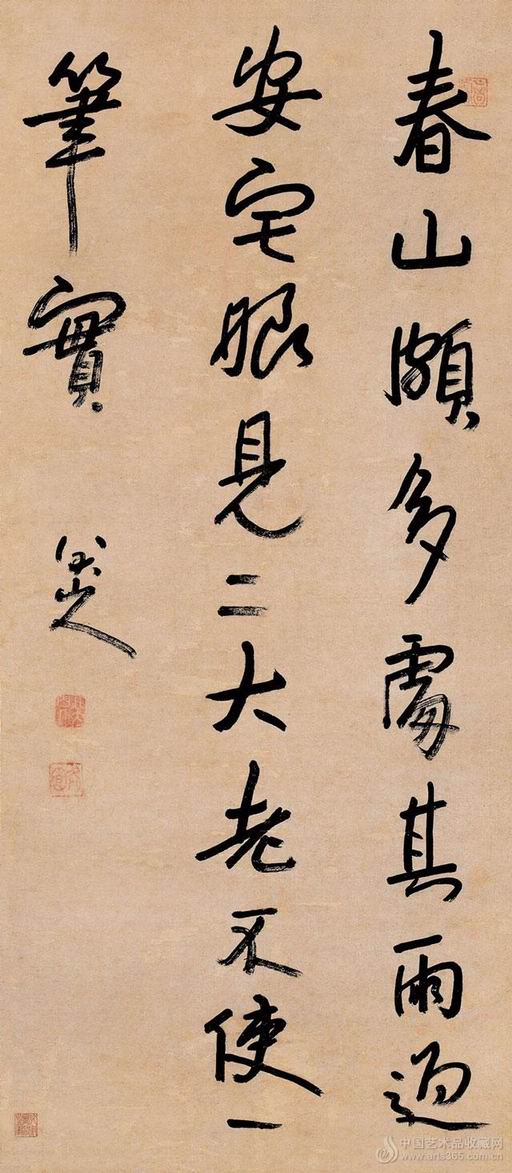 春山頗多處其雨過
安宅眼見二大老不使一
筆實
八大山人
中国艺术品收藏网
www.arts365.com.cn